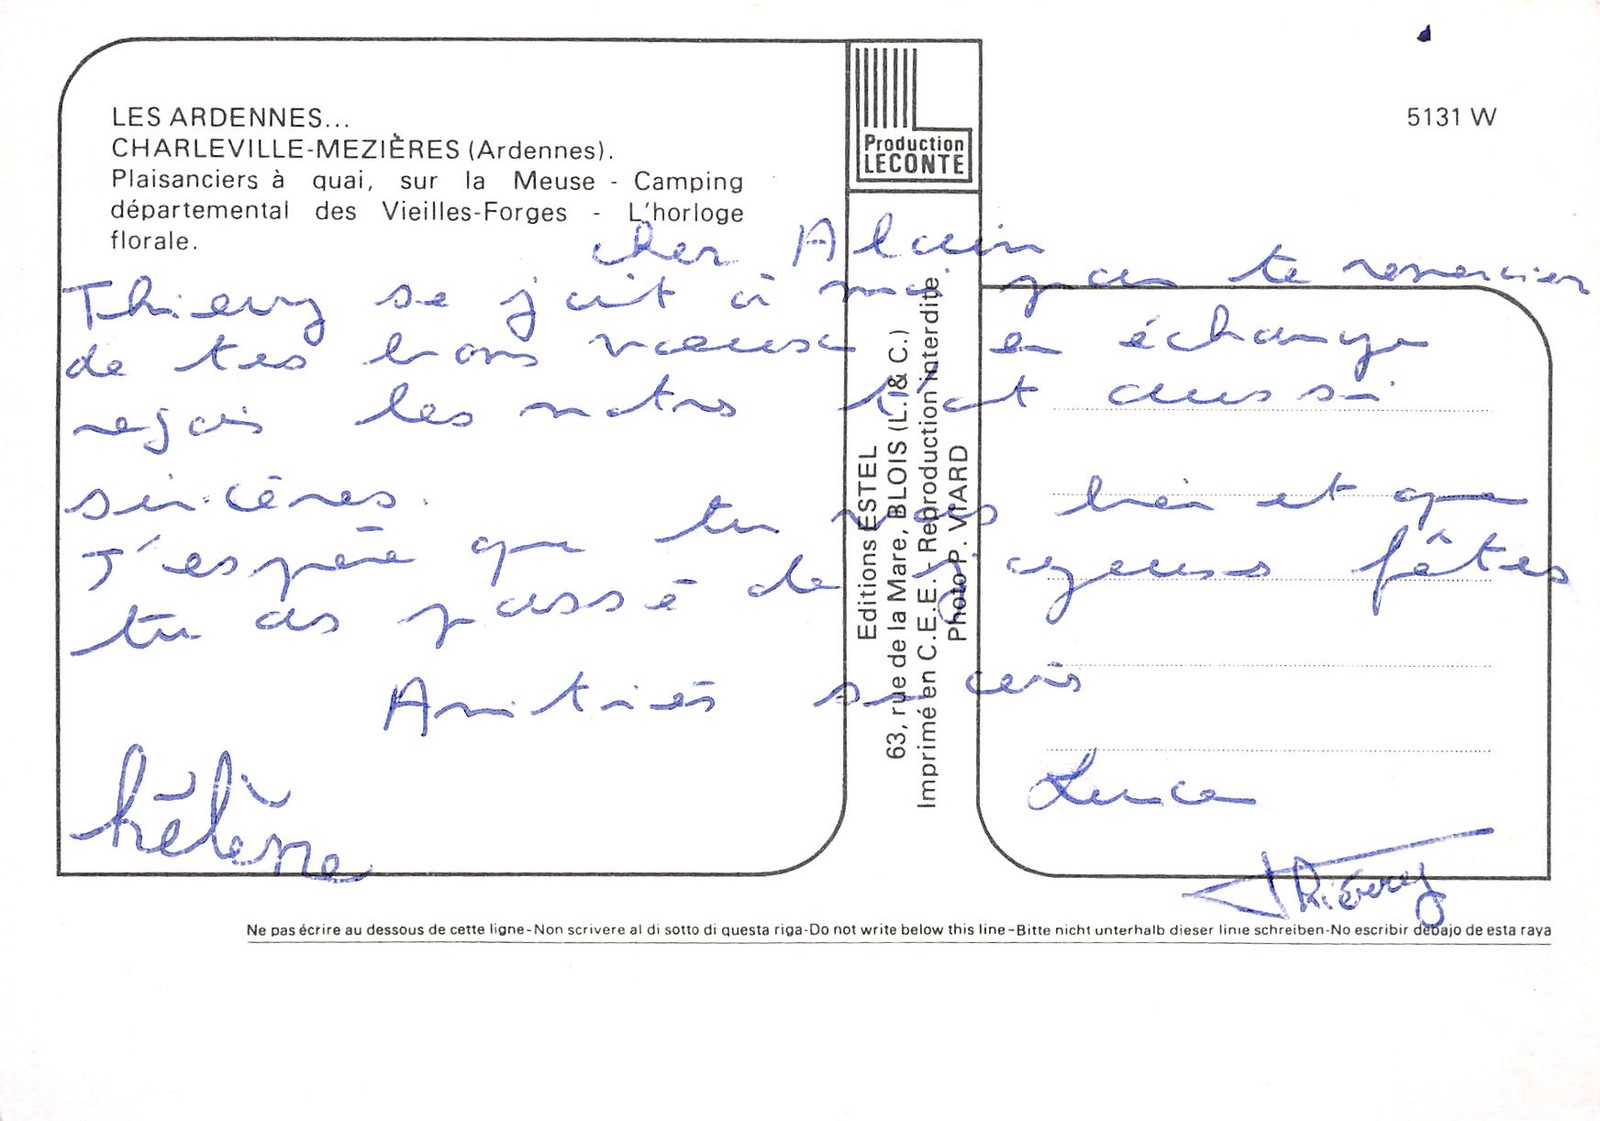 LES ARDENNES...
CHARLEVILLE-MEZIÈRES (Ardennes).
Plaisanciers à quai, sur la Meuse - Camping
départemental des Vieilles-Forges - L'horloge
florale.
Production
LECONTE
5131 W
cher Alain
Thierry se joint à moi pour te remercier
de tes bons voeux en échange
reçois les notres tout aussi
sincères.
J'espère que tu vas bien et que
tu as passé de joyeuses fêtes
Amitiés sincères
hélène
Thiérry
Editions ESTEL
63, rue de la Mare, BLOIS (L. & C.)
Imprimé en C.E.E. - Reproduction interdite
Photo P. VIARD
Ne pas écrire au dessous de cette ligne-Non scrivere al di sotto di questa riga-Do not write below this line-Bitte nicht unterhalb dieser linie schreiben-No escribir debajo de esta raya